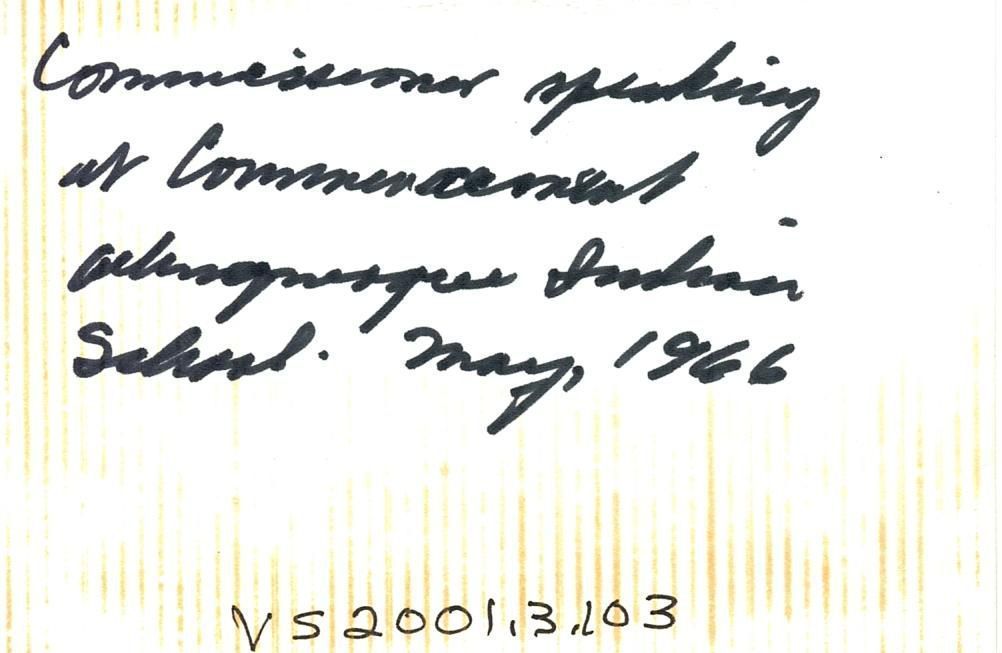 Commissioner speaking
at Commencement
Albuquerque Indian
School. May, 1966
VS2001.3.103